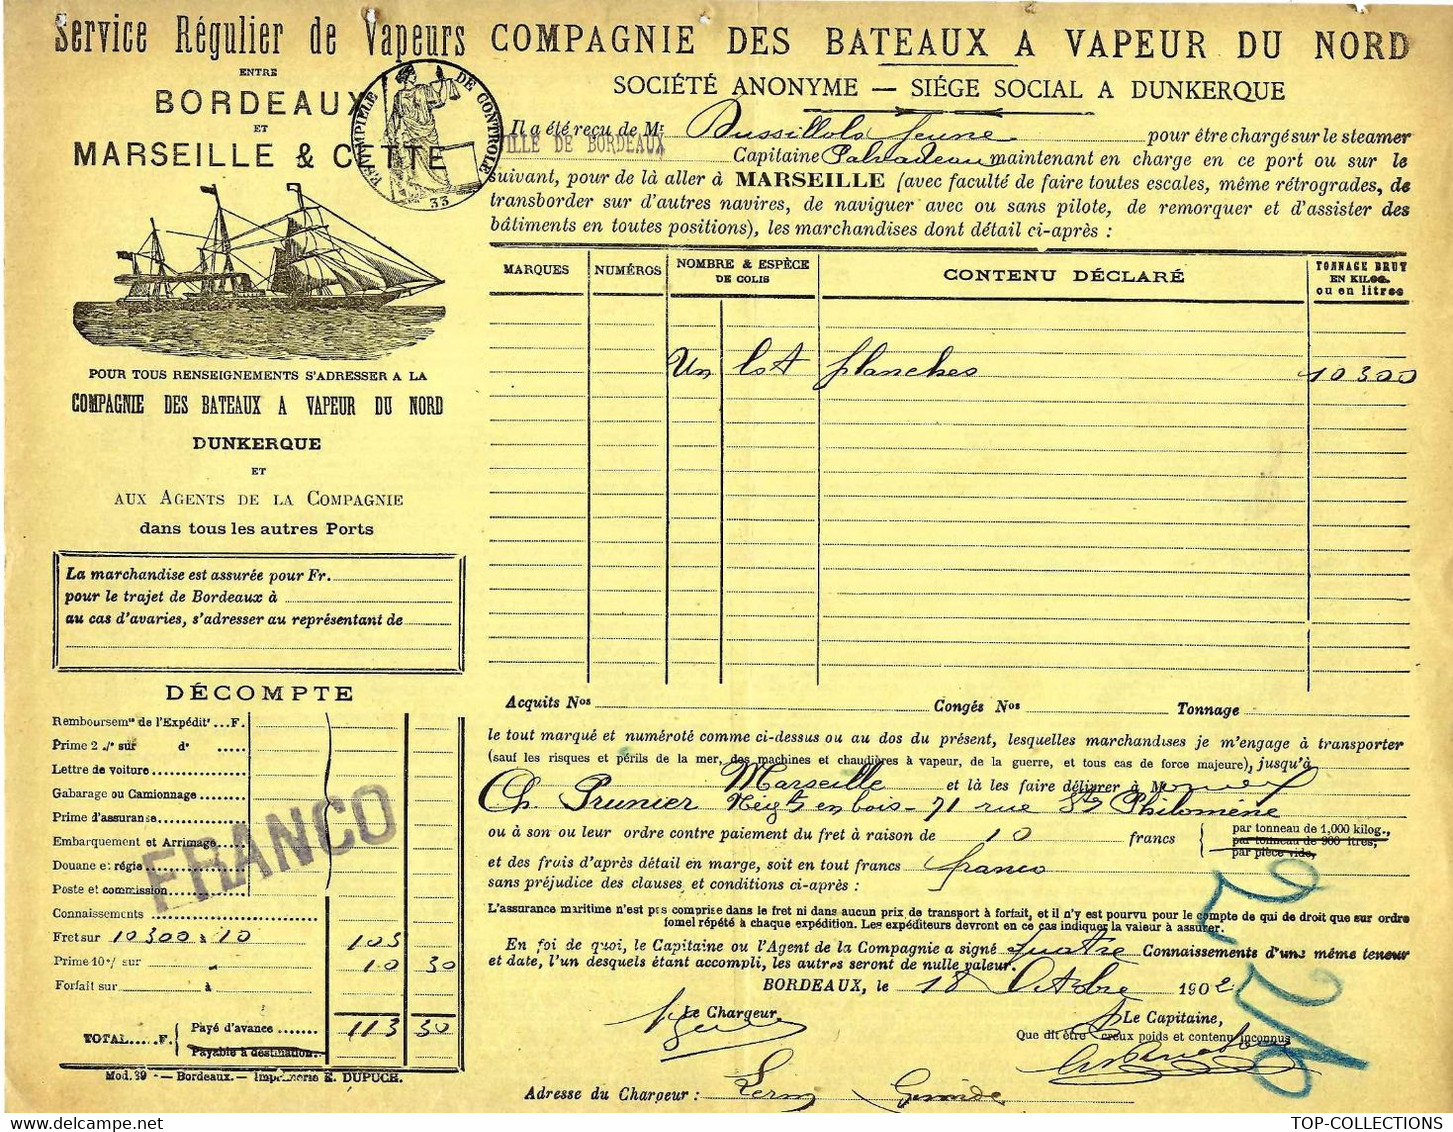 Service Régulier de Vapeurs
ENTRE
BORDEAUX
ET
MARSEILLE & CETTE
ESTAMPILLE DE CONTROLE
33
POUR TOUS RENSEIGNEMENTS S'ADRESSER A LA
COMPAGNIE DES BATEAUX A VAPEUR DU NORD
DUNKERQUE
ET
AUX AGENTS DE LA COMPAGNIE
dans tous les autres Ports
La marchandise est assurée pour Fr.
pour le trajet de Bordeaux à
au cas d'avaries, s'adresser au représentant de
DÉCOMPTE
Remboursemt de l'Expédit' ...F.
Prime 2 ./° sur d°
Lettre de voiture
Gabarage ou Camionnage
Prime d'assurance
Embarquement et Arrimage
Douane et régie
Poste et commission
FRANCO
Connaissements
Fret sur 10300 à 10 103
Prime 10°/ sur 10 30
Forfait sur à
TOTAL.....F.
Payé d'avance 113 30
Payable à destination
Mod. 39 - Bordeaux. — Imprimerie E. DUPUCH.
COMPAGNIE DES BATEAUX A VAPEUR DU NORD
SOCIÉTÉ ANONYME — SIÉGE SOCIAL A DUNKERQUE
Il a été reçu de Mr Dussillols Jeune pour être chargé sur le steamer
VILLE DE BORDEAUX Capitaine maintenant en charge en ce port ou sur le
suivant, pour de là aller à MARSEILLE (avec faculté de faire toutes escales, même rétrogrades, de
transborder sur d'autres navires, de naviguer avec ou sans pilote, de remorquer et d'assister des
bâtiments en toutes positions), les marchandises dont détail ci-après :
MARQUES NUMÉROS NOMBRE & ESPÈCE DE COLIS CONTENU DÉCLARÉ TONNAGE BRUT EN KILOG. ou en litres
Un lot planches 10300
Acquits Nos Congés Nos Tonnage
le tout marqué et numéroté comme ci-dessus ou au dos du présent, lesquelles marchandises je m'engage à transporter
(sauf les risques et périls de la mer, des machines et chaudières à vapeur, de la guerre, et tous cas de force majeure), jusqu'à
Marseille et là les faire délivrer à M
Ch. Prunier Négt en bois - 71 rue Ste Philomène
ou à son ou leur ordre contre paiement du fret à raison de 10 francs
par tonneau de 1,000 kilog.,
par tonneau de 900 litres,
par pièce vide,
et des frais d'après détail en marge, soit en tout francs franco
sans préjudice des clauses et conditions ci-après :
L'assurance maritime n'est pas comprise dans le fret ni dans aucun prix de transport à forfait, et il n'y est pourvu pour le compte de qui de droit que sur ordre
formel répété à chaque expédition. Les expéditeurs devront en ce cas indiquer la valeur à assurer.
En foi de quoi, le Capitaine ou l'Agent de la Compagnie a signé quatre Connaissements d'une même teneur
et date, l'un desquels étant accompli, les autres seront de nulle valeur.
BORDEAUX, le 18 Octobre 1902
Le Chargeur,
Le Capitaine,
Que dit être creux poids et contenu inconnus
Adresse du Chargeur : Gironde
TOP-COLLECTIONS